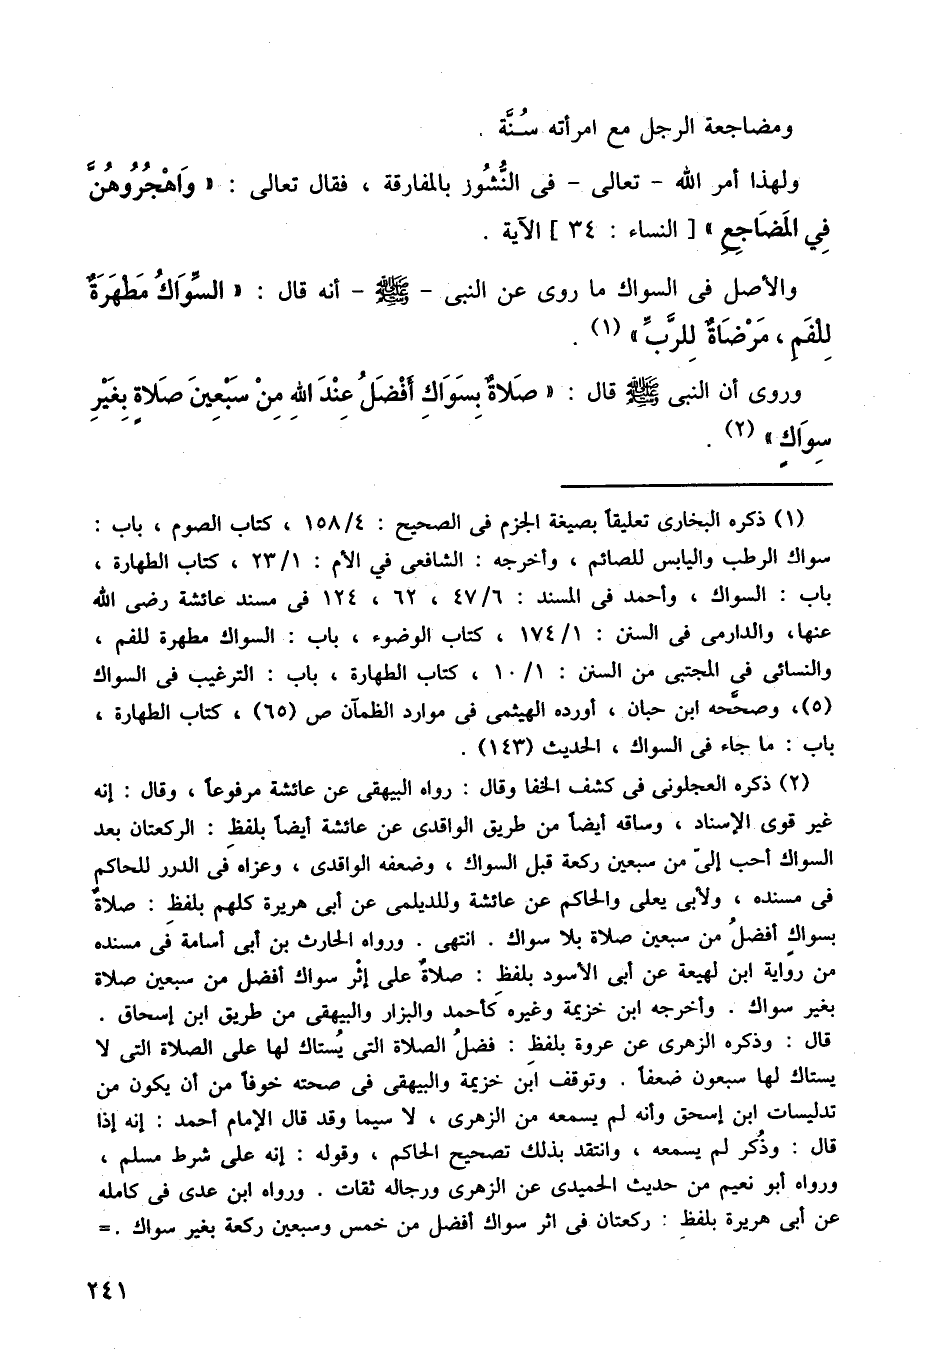 ومضاجعة الرجل مع امرأته سُنَّة .
ولهذا أمر الله - تعالى - فى النُّشُوز بالمفارقة ، فقال تعالى : « وَاهْجُرُوهُنَّ
فِي المَضَاجِعِ » [ النساء : ٣٤ ] الآية .
والأصل فى السواك ما روى عن النبى - ﷺ - أنه قال : « السِّوَاكُ مَطْهَرَةٌ
لِلْفَمِ ، مَرْضَاةٌ لِلرَّبِّ » (١) .
وروى أن النبى ﷺ قال : « صَلَاةٌ بِسَوَاكِ أَفْضَلُ عِنْدَ اللهِ مِنْ سَبْعِينَ صَلاةٍ بِغَيْرِ
سِوَاكٍ » (٢) .
(١) ذكره البخارى تعليقاً بصيغة الجزم فى الصحيح : ١٥٨/٤ ، كتاب الصوم ، باب :
سواك الرطب واليابس للصائم ، وأخرجه : الشافعى في الأم : ٢٣/١ ، كتاب الطهارة ،
باب : السواك ، وأحمد فى المسند : ٤٧/٦ ، ٦٢ ، ١٢٤ فى مسند عائشة رضى الله
عنها، والدارمى فى السنن : ١٧٤/١ ، كتاب الوضوء ، باب : السواك مطهرة للفم ،
والنسائى في المجتبى من السنن : ١٠/١ ، كتاب الطهارة ، باب : الترغيب فى السواك
(٥)، وصحَّحه ابن حبان ، أورده الهيثمى فى موارد الظمآن ص (٦٥) ، كتاب الطهارة ،
باب : ما جاء فى السواك ، الحديث (١٤٣) .
(٢) ذكره العجلونى فى كشف الخفا وقال : رواه البيهقى عن عائشة مرفوعاً ، وقال : إنه
غير قوى الإسناد ، وساقه أيضاً من طريق الواقدى عن عائشة أيضاً بلفظِ : الركعتان بعد
السواك أحب إلىّ من سبعين ركعة قبل السواك ، وضعفه الواقدى ، وعزاه فى الدرر للحاكم
فى مسنده ، ولأبى يعلى والحاكم عن عائشة وللديلمى عن أبى هريرة كلهم بلفظِ : صلاةٌ
بسواكٍ أفضلُ من سبعين صلاة بلا سواك . انتهى . ورواه الحارث بن أبى أسامة فى مسنده
من رواية ابن لهيعة عن أبى الأسود بلفظِ : صلاةٌ على إثْر سواك أفضل من سبعين صلاة
بغير سواك . وأخرجه ابن خزيمة وغيره كأحمد والبزار والبيهقى من طريق ابن إسحاق .
قال : وذكره الزهرى عن عروة بلفظِ : فضلُ الصلاة التى يُستاك لها على الصلاة التى لا
يستاك لها سبعون ضعفاً . وتوقف ابن خزيمة والبيهقى فى صحته خوفاً من أن يكون من
تدليسات ابن إسحق وأنه لم يسمعه من الزهرى ، لا سيما وقد قال الإمام أحمد : إنه إذا
قال : وذُكر لم يسمعه ، وانتقد بذلك تصحيح الحاكم ، وقوله : إنه على شرط مسلم ،
ورواه أبو نعيم من حديث الحميدى عن الزهرى ورجاله ثقات . ورواه ابن عدى فى كامله
عن أبى هريرة بلفظِ : ركعتان فى اثر سواك أفضل من خمس وسبعين ركعة بغير سواك .=
٢٤١